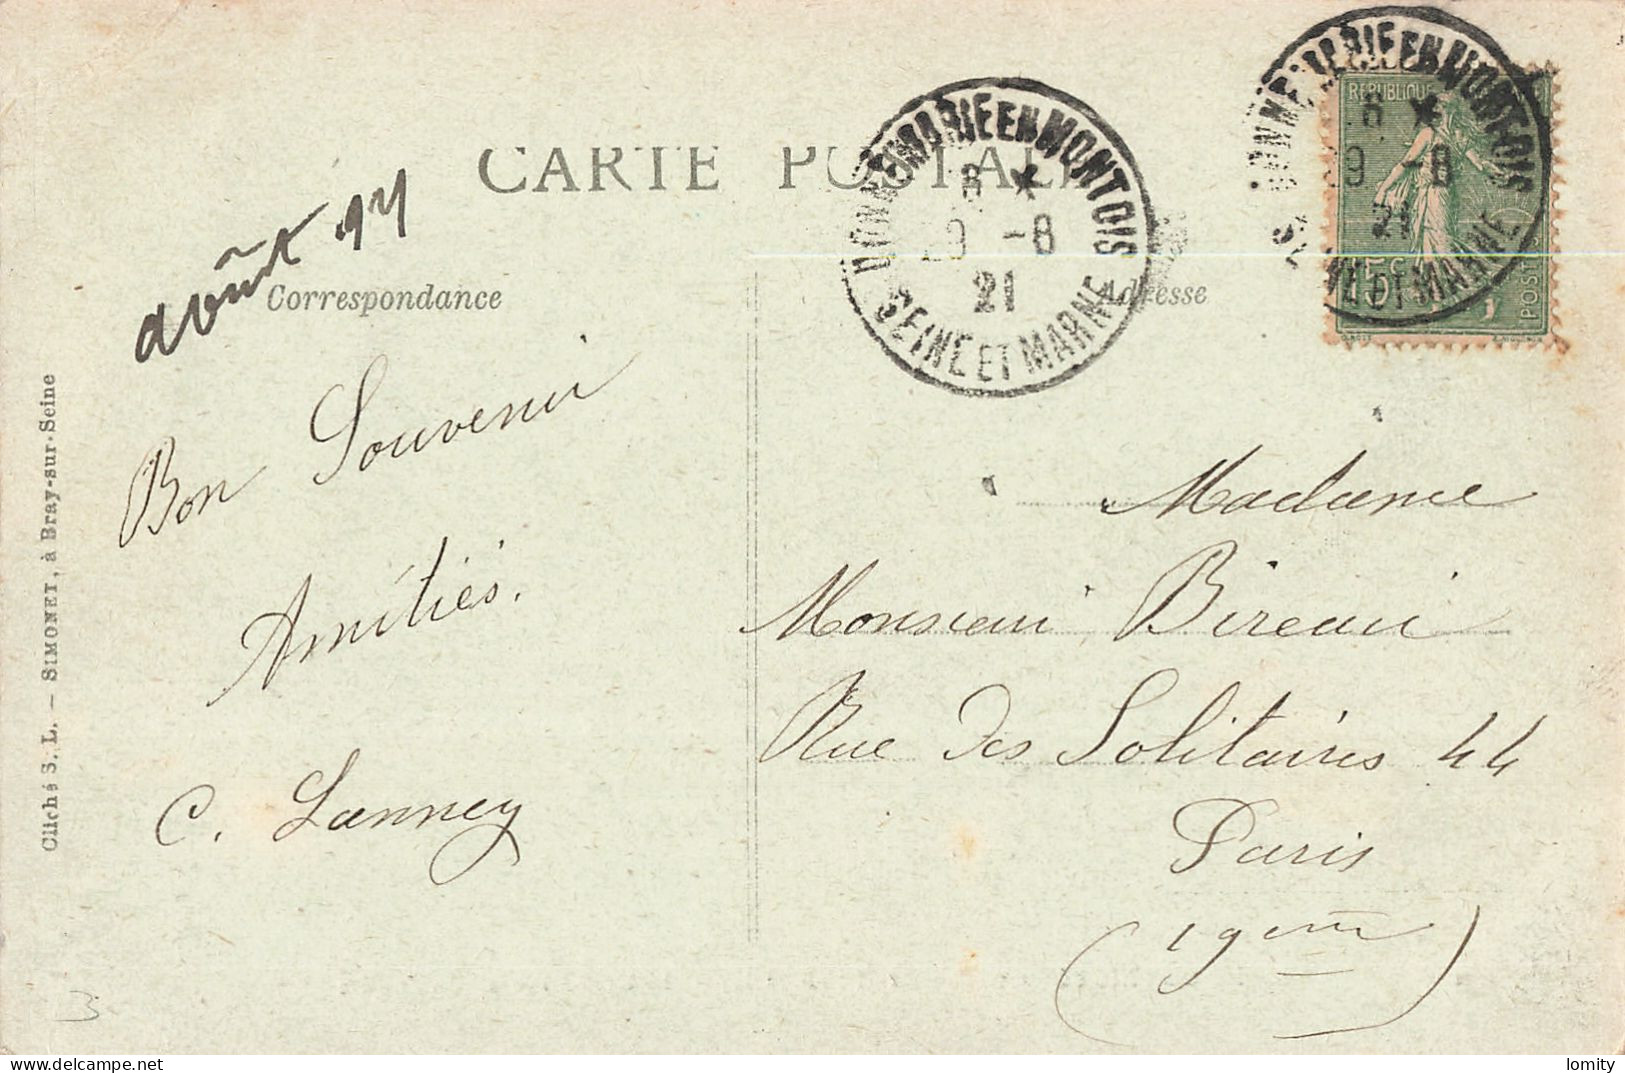 CARTE POSTALE
DONNEMARIE EN MONTOIS
8 *
29 -8
21
SEINE ET MARNE
DONNEMARIE EN MONTOIS
8 *
29 -8
21
SEINE ET MARNE
REPUBLIQUE
15c
POSTES
août
Correspondance
Adresse
Bon Souvenir
Amitiés.
C. Lanney
Madame
Monsieur Bireau
Rue des Solitaires 44
Paris
(19em)
Cliché S. L. — SIMONET, à Bray-sur-Seine
3
lomity